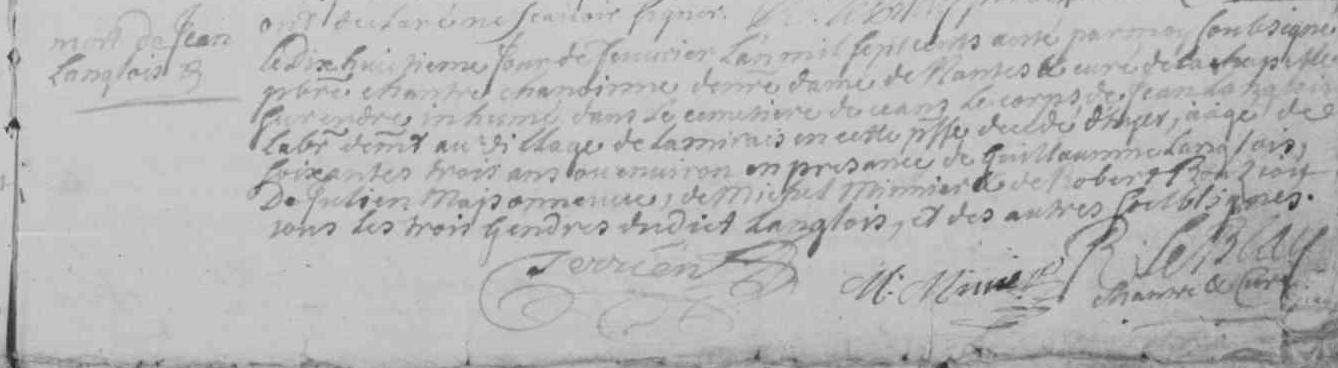 mort de Jean
Langlois
ont declaré ne scavoir signer.
le Dix huictieme Jour de Janvier L'an mil sept cents a esté par moy soubsigné
pbre chantre chanoinne de nre dame de Nantes & curé de la chapelle
inhumé dans le cemetiere de ceans le corps de Jean Langlois
Labr demt au village de la mirais en cette psse decedé d'hyer, aagé de
soixantes trois ans ou environ en presance de Guillaumme Langlois,
De Julien Maisonneuve, de Michel Minnier & de Robert
tous les trois Gendres dudict Langlois, et des autres soubsignes.
Terrien
M. Minier
R. Le Blay
chantre & Curé